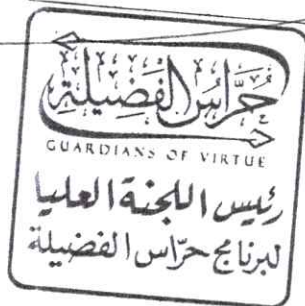 حُرَّاسُ الفَضِيلَةِ
GUARDIANS OF VIRTUE
رئيس اللجنة العليا
لبرنامج حرّاس الفضيلة